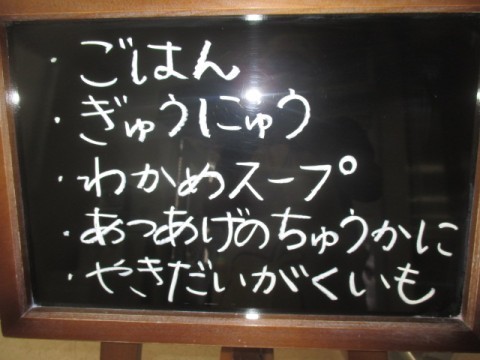 ・ごはん
・ぎゅうにゅう
・わかめスープ
・あつあげのちゅうかに
・やきだいがくいも